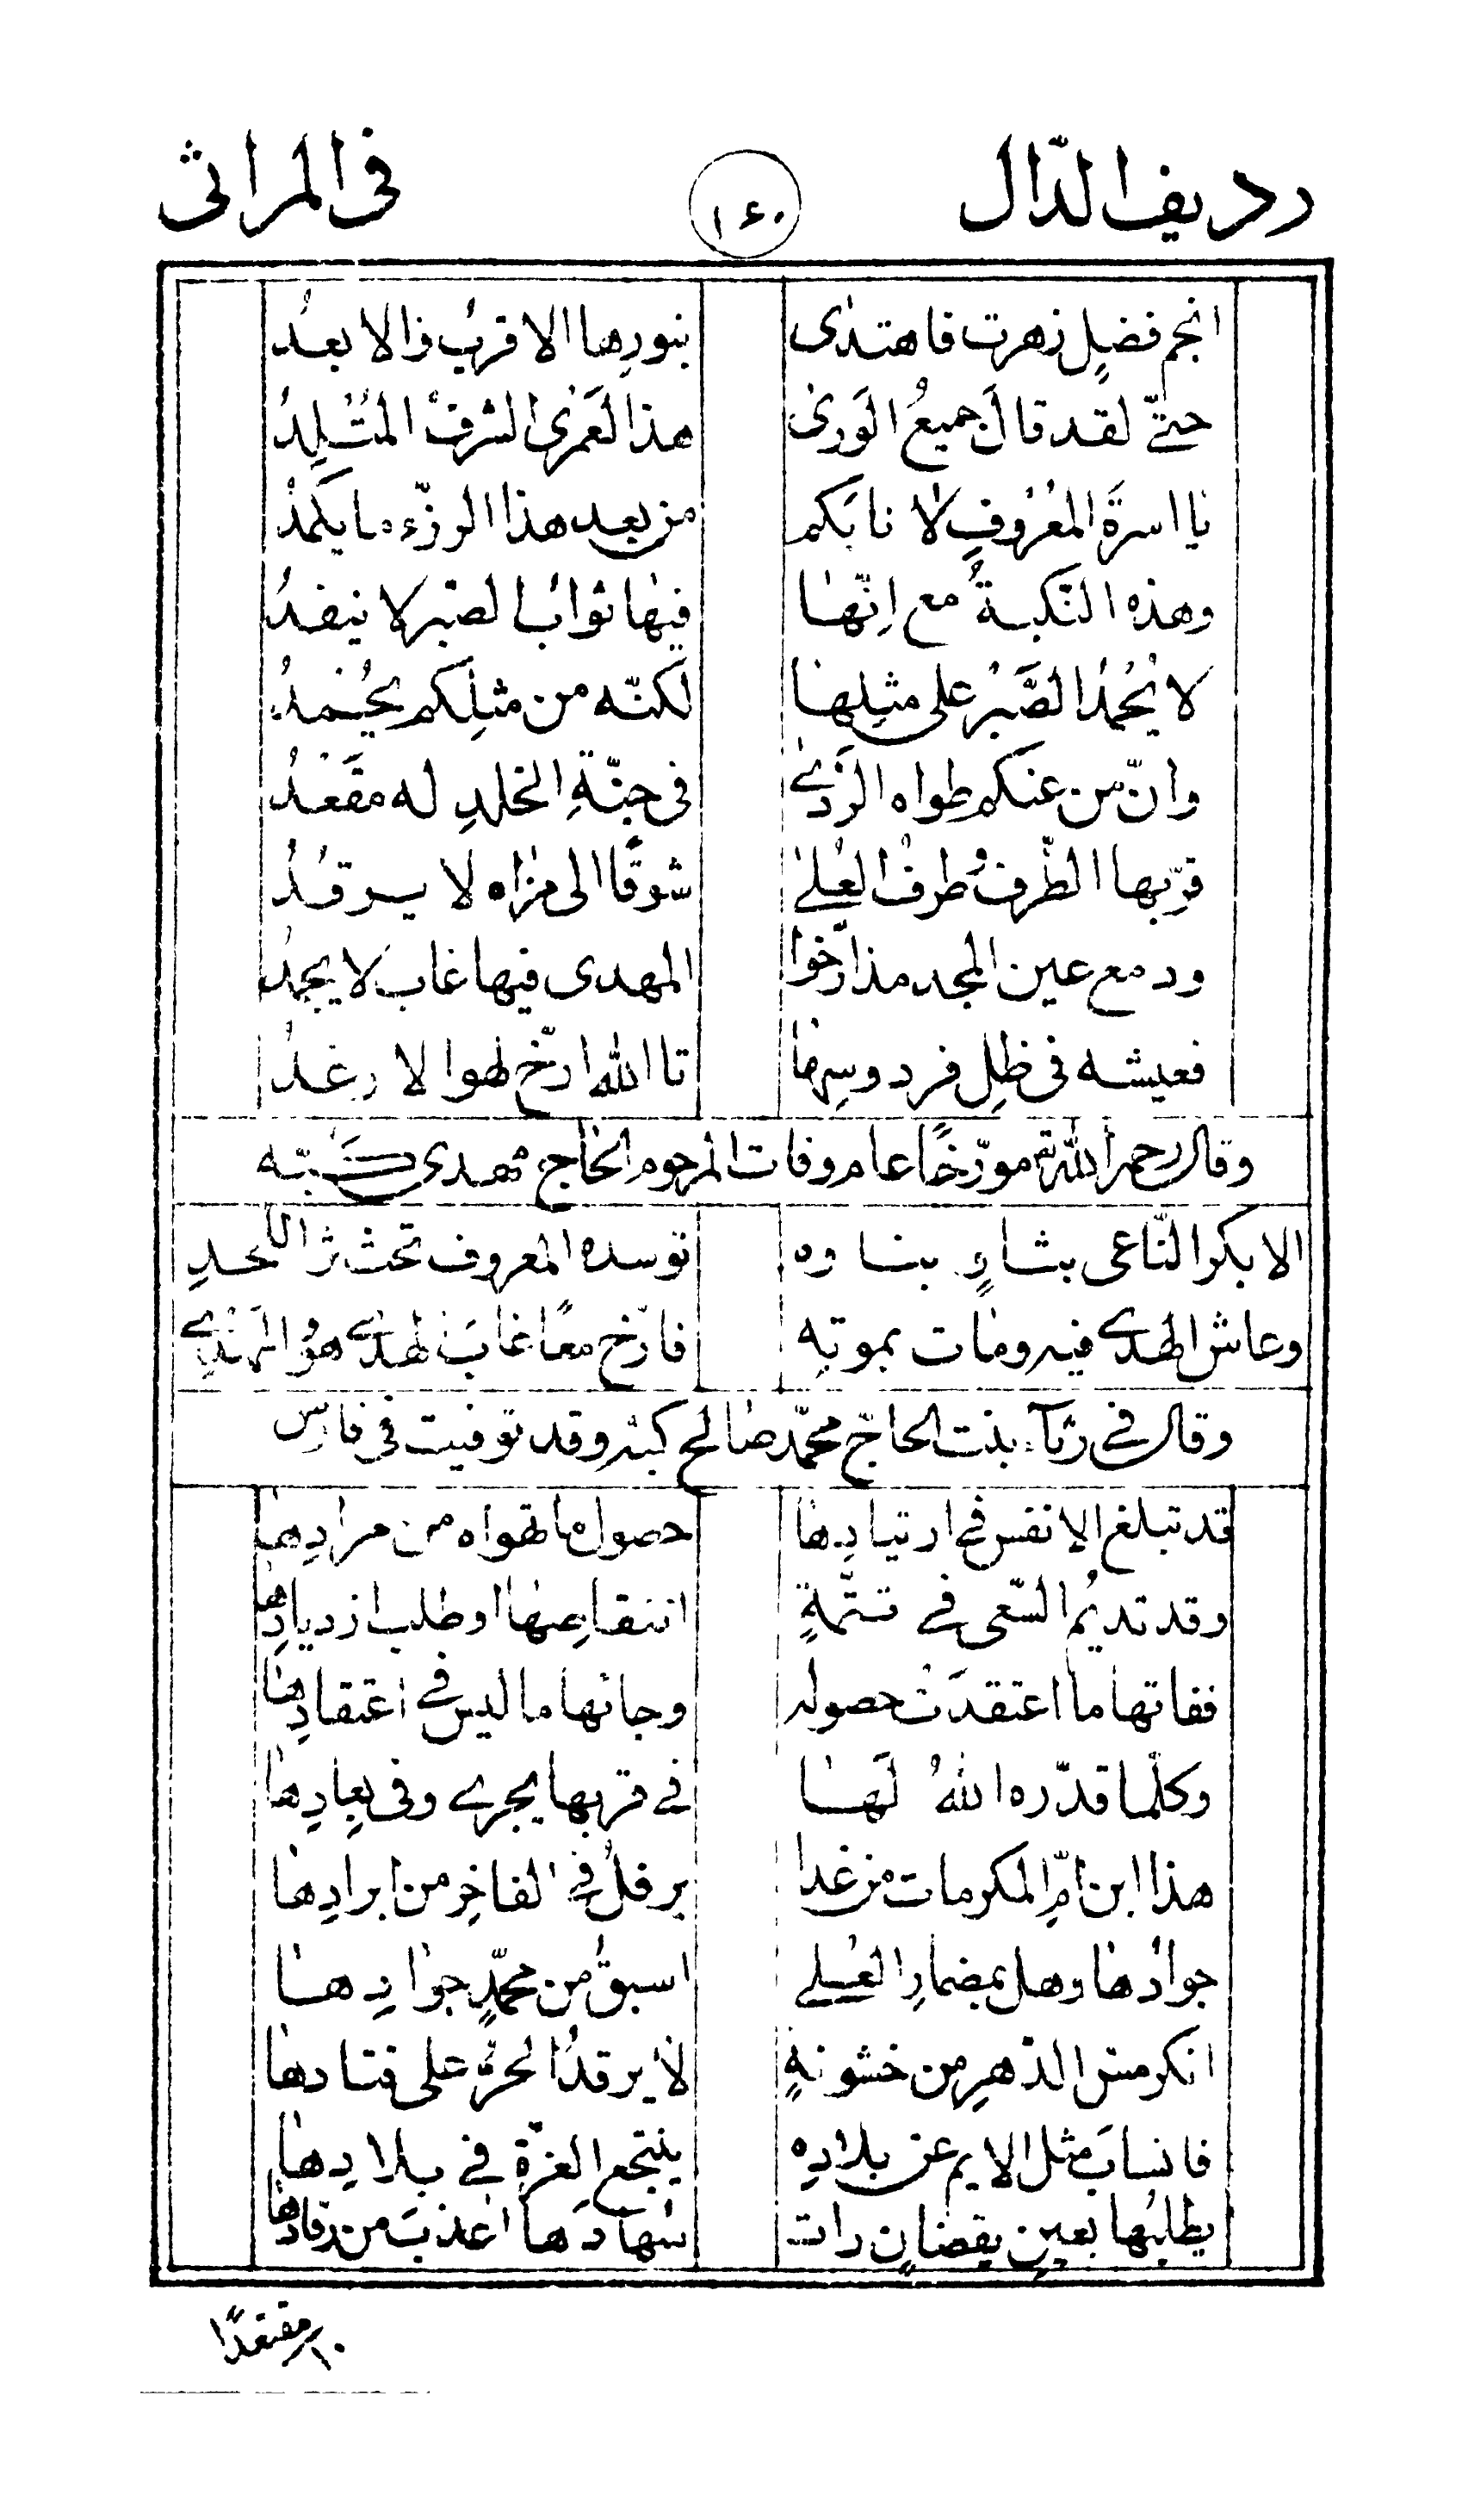 رديف الدّال ١٤٠ في المراثى
انجم فضلٍ زهرت فاهتدى بنورِها الاقربُ والابعدُ
حتىّ لقد قالَ جميعُ الوَرىٰ هذا لَعَمْرى الشرفُ المُتْلِدُ
يا اسرةَ المَعْرُوفِ لا نابَكم من بعد هذا الرزّء ما يكمَدُ
وهذه النّكبةُ مع اِنّها فيها ثوابُ الصّبر لا ينفدُ
لا يُحْمَدُ الصَّبرُ على مثلِها لكنّه من مثلِكم يُحْمَدُ
وانّ من عنكم طواه الرَّدىٰ في جنّةِ الخلدِ له مقعَدُ
قرّ بها الطّرفُ وطرفُ العُلىٰ شوقًا الى مزاه لا يرقدُ
ودمع عين المجد مذ ارّخوا المهدى فيها غاب لا يجمدُ
فعيشه فى ظلِ فردوسِها تا الله ارّخ لهوا لا رغدُ
وقال رحمه الله مورّخًا عام وفات المرحوم الحاج مهدى كبّه
الا بكر النّاعى بشاوٍ بناوه توسده المعروف تحث ثرا اللحدِ
وعاش الهدى فيه ومات بموتِه فارّخ معًا غابَ الهدى هوُ المهدي
وقال فى رثآء بنت الحاجّ محمّد صالح كبّه وقد توفيت فى فارس
قد تبلغ الانفس فى ارتيادِها حصول ما تهواه من مرادِها
وقد تديمُ السّعى فى تتمّةٍ انتقاصِها او طلب ازديادِها
ففاتها ما اعتقدَتْ حصوله وجائها ما ليس فى اعتقادِها
وكلّما قدّره اللهُ لَها فى قربها يجرى وفى بِعادِها
هذا ابن امّ المكرمات من غدا يرفلُ فى الفاخِرِ من ابرادِها
جوادُها وهل بمضمارِ العُلى اسبقُ من محمّدٍ جوادِها
انكر مسّ الدهرِ من خشونةٍ لا يرقدُ الحرُّ على قتادها
فانسابَ مثل الايم عن بلادِه ينتجع العزّةِ فى بلادِها
يطلبُها بعينِ يقضانٍ رات سُهادَها اعذبَ من رقادِها
مفتقدًا